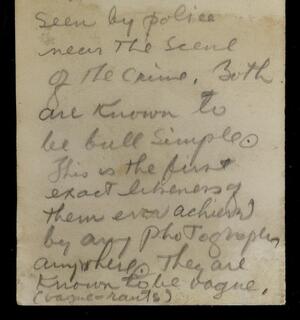 seen by police
near The Scene
of The Crime. Both
are Known to
be bull Simple.
This is the first
exact likeness of
them ever achieved
by any Photographer
anywhere. They are
Known to be vague.
(vague-rants)